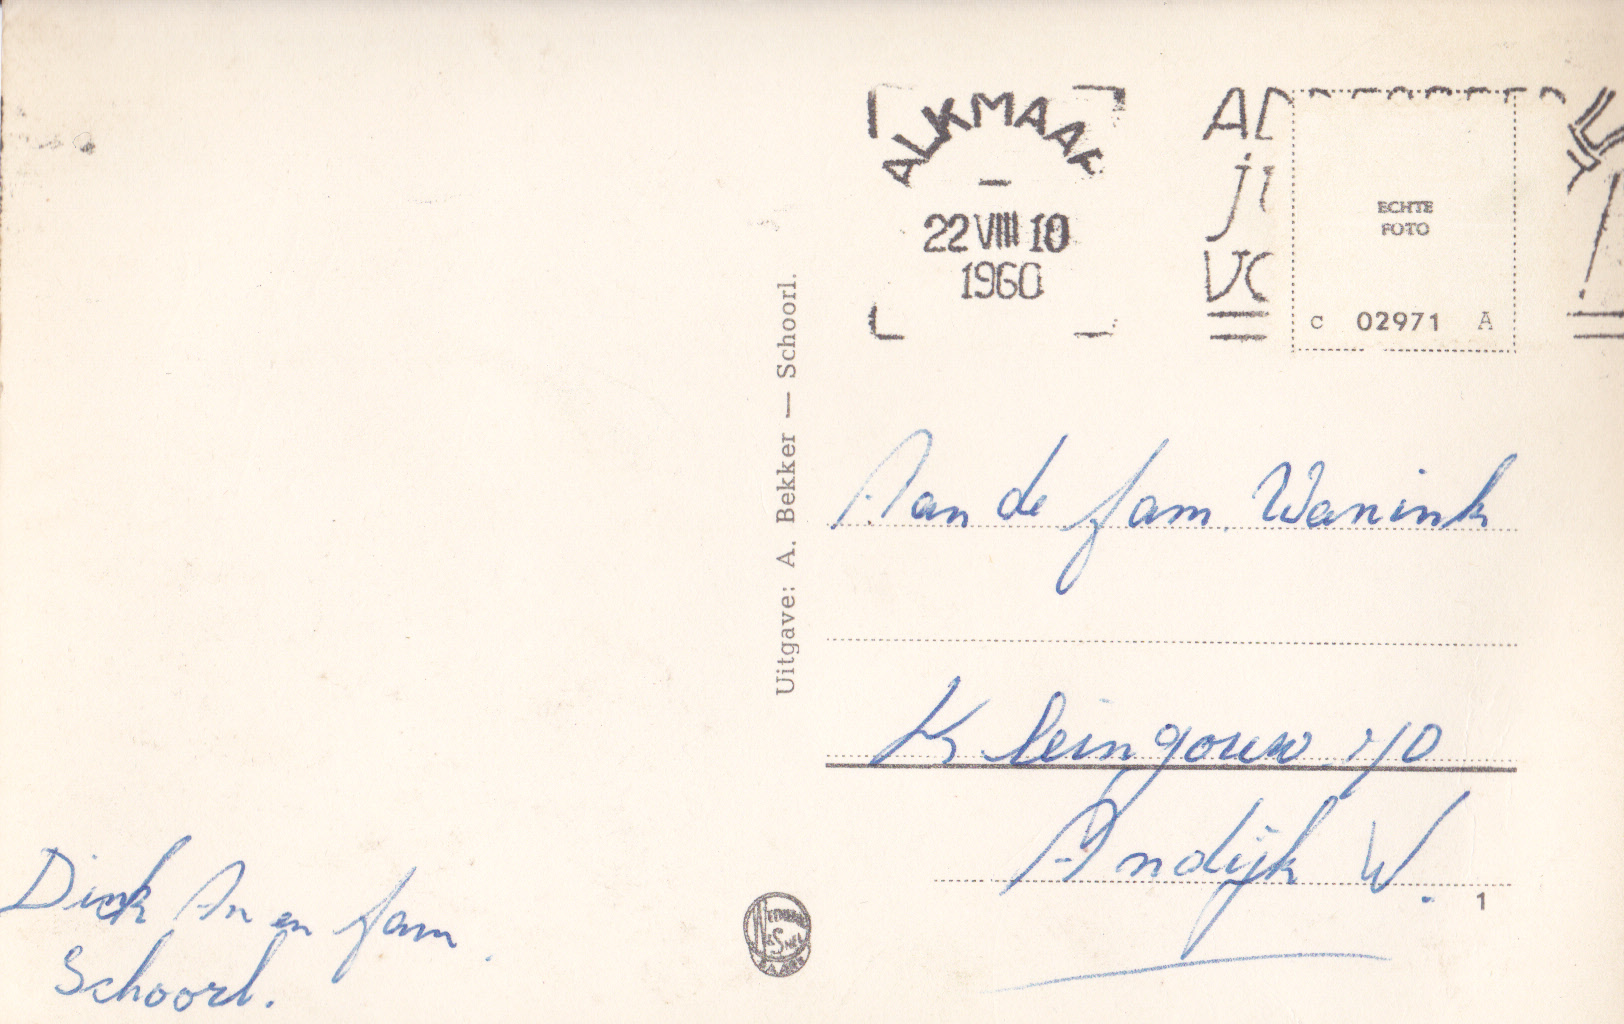 ALKMAAR
22 VIII 10
1960
ECHTE
FOTO
C 02971 A
Uitgave: A. Bekker — Schoorl.
Aan de fam. Wanink
Kleingouw
Andijk W.
1
Dick An en fam.
Schoorl.